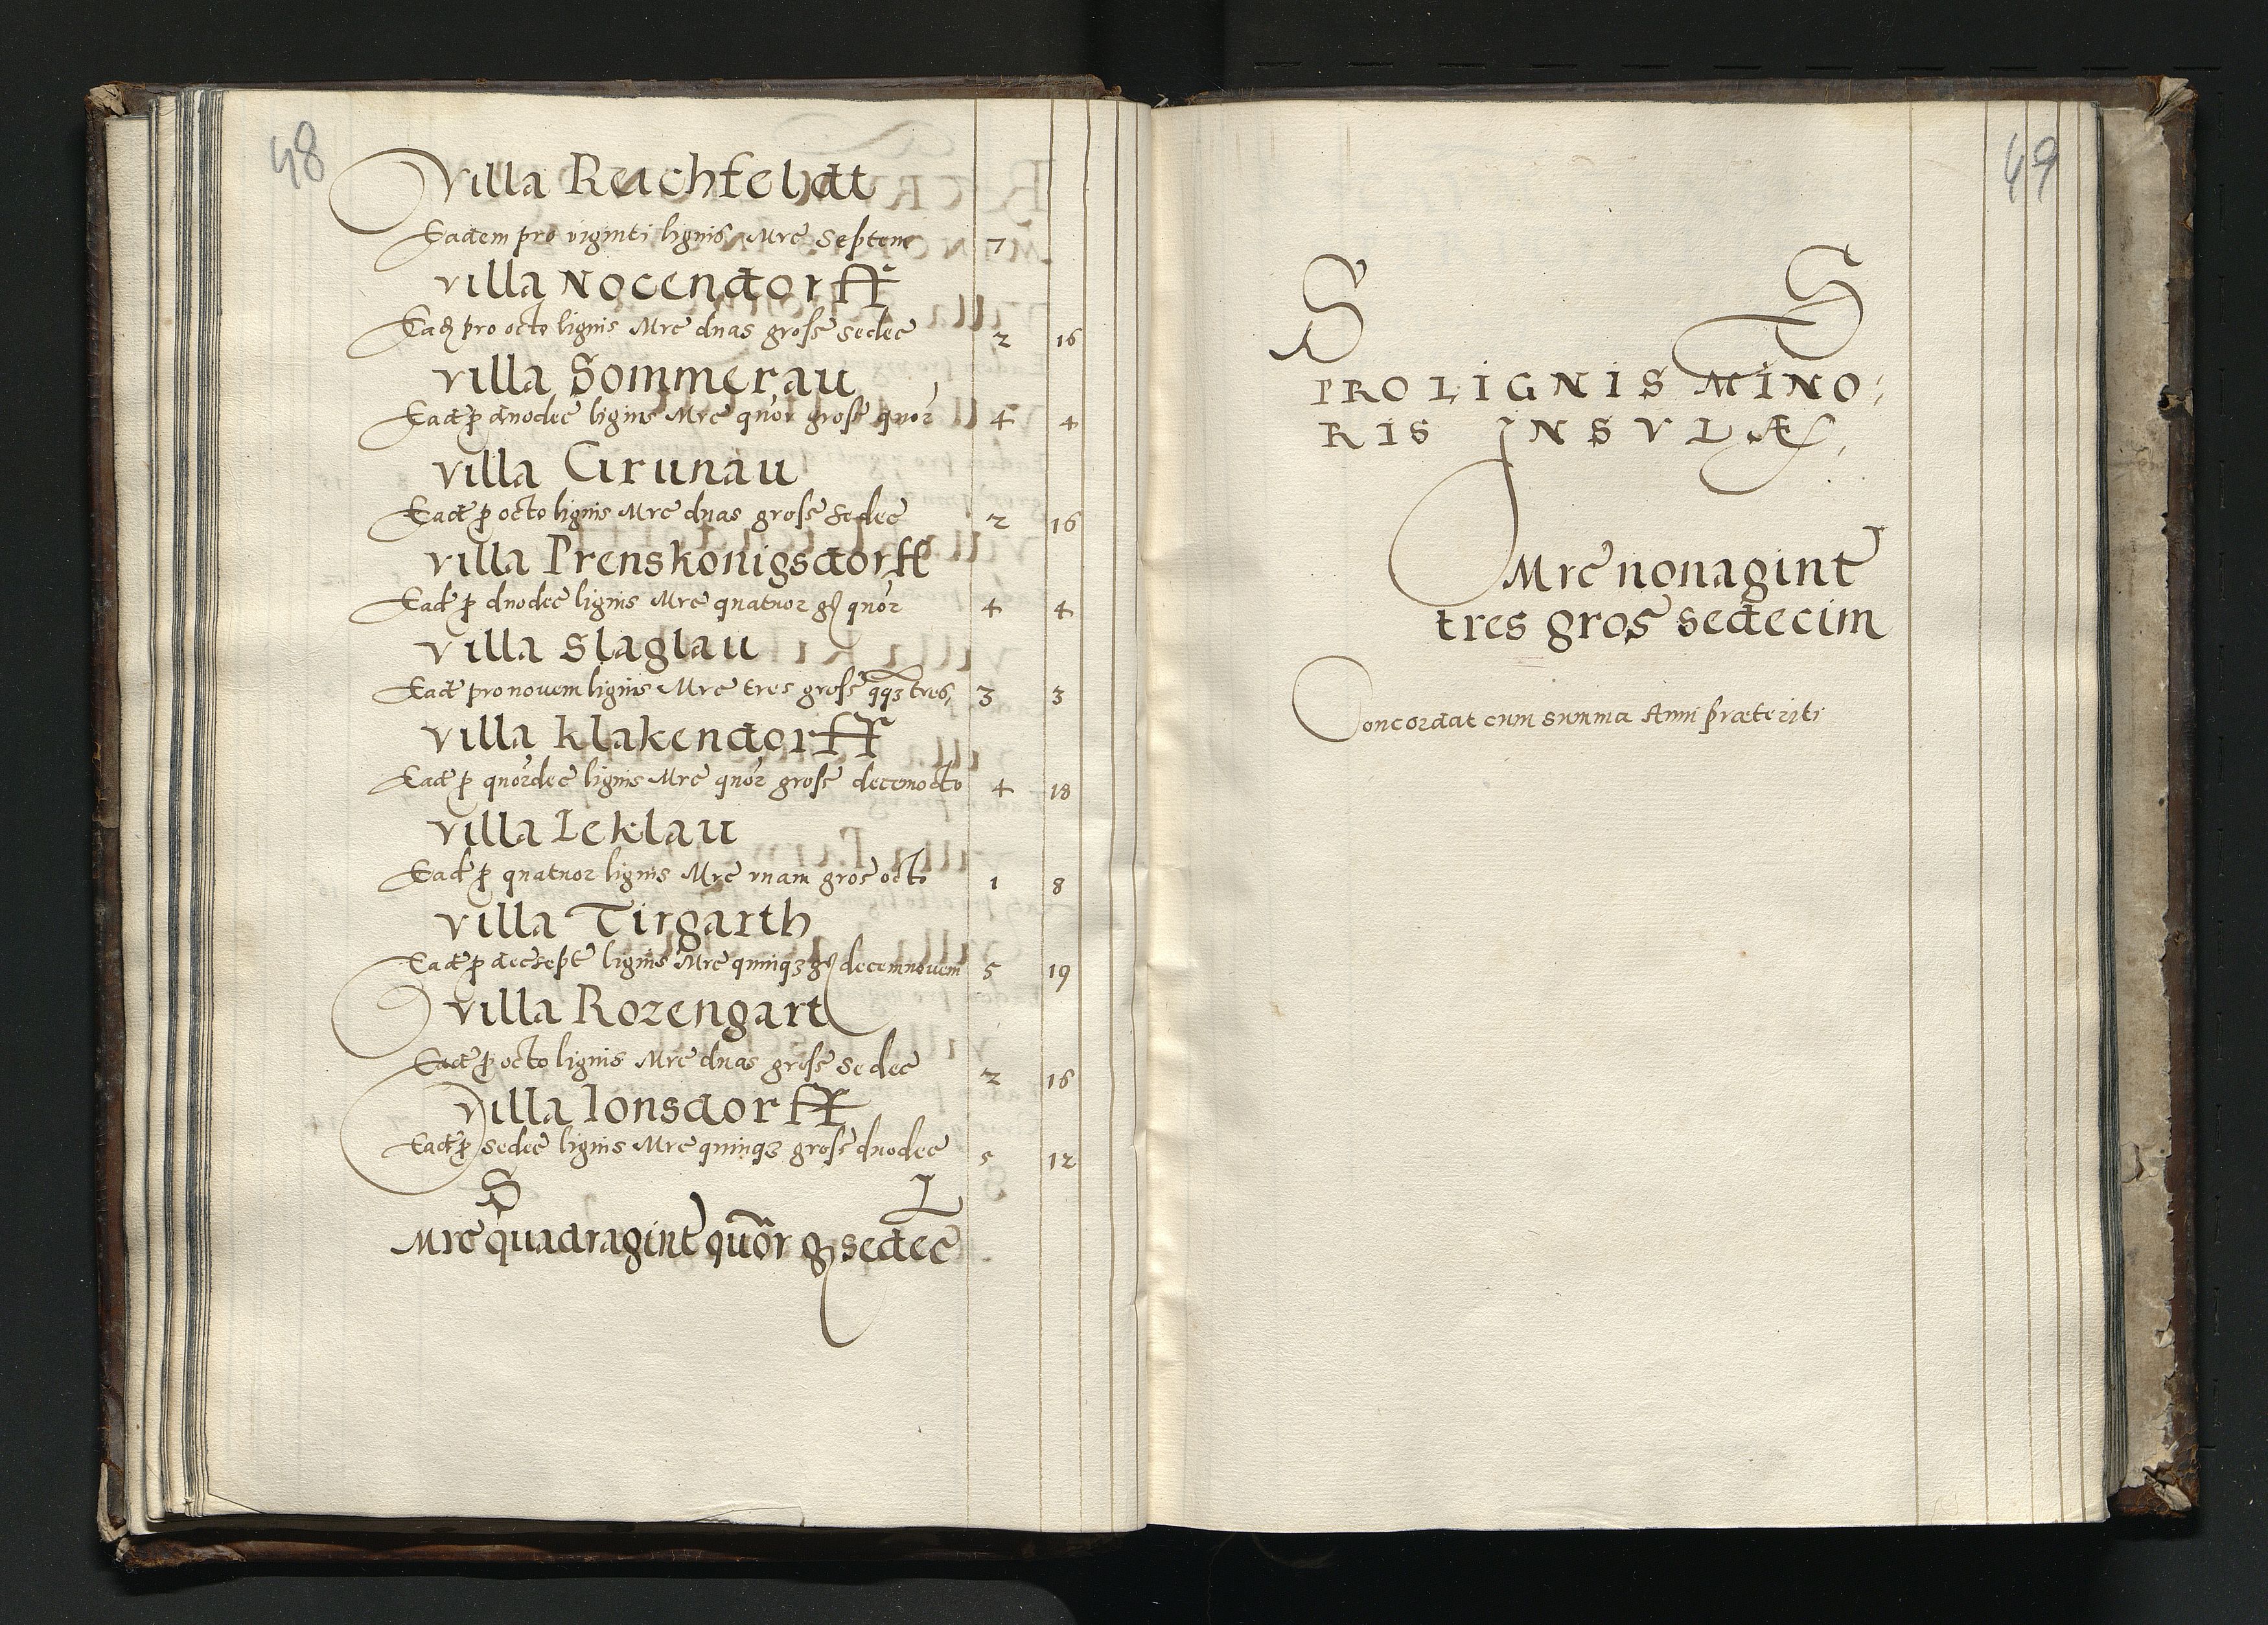 48
villa Reichfeldt
Eadem pro viginti lignis Mrc septem 7
villa Nocendorff
Ead pro octo lignis Mrc duas gross sedec 2 16
villa Sommerau
Ead p duodec lignis Mrc quor gross quor 4 4
villa Grunau
Ead p octo lignis Mrc duas gross sedec 2 16
villa Prenskonigsdorff
Ead p duodec lignis Mrc quatuor g quor 4 4
villa Slaglau
Ead pro novem lignis Mrc tres gross qqz tres, 3 3
villa Klakendorff
Ead p quordec lignis Mrc quor gross decemocto 4 18
villa Leklau
Ead p quatuor lignis Mrc unam gros octo 1 8
villa Tirgarth
Ead p decsept lignis Mrc quinqz g decemnovem 5 19
villa Rozengart
Ead p octo lignis Mrc duas gross sedec 2 16
villa Ionsdorff
Ead p sedec lignis Mrc quinqz gross duodec 5 12
S L
Mrc quadragint quor g sedec
49
S S
PRO LIGNIS MINO:
RIS INSVLÆ,
Mrc nonagint
tres gros sedecim
Concordat cum summa Anni præteriti